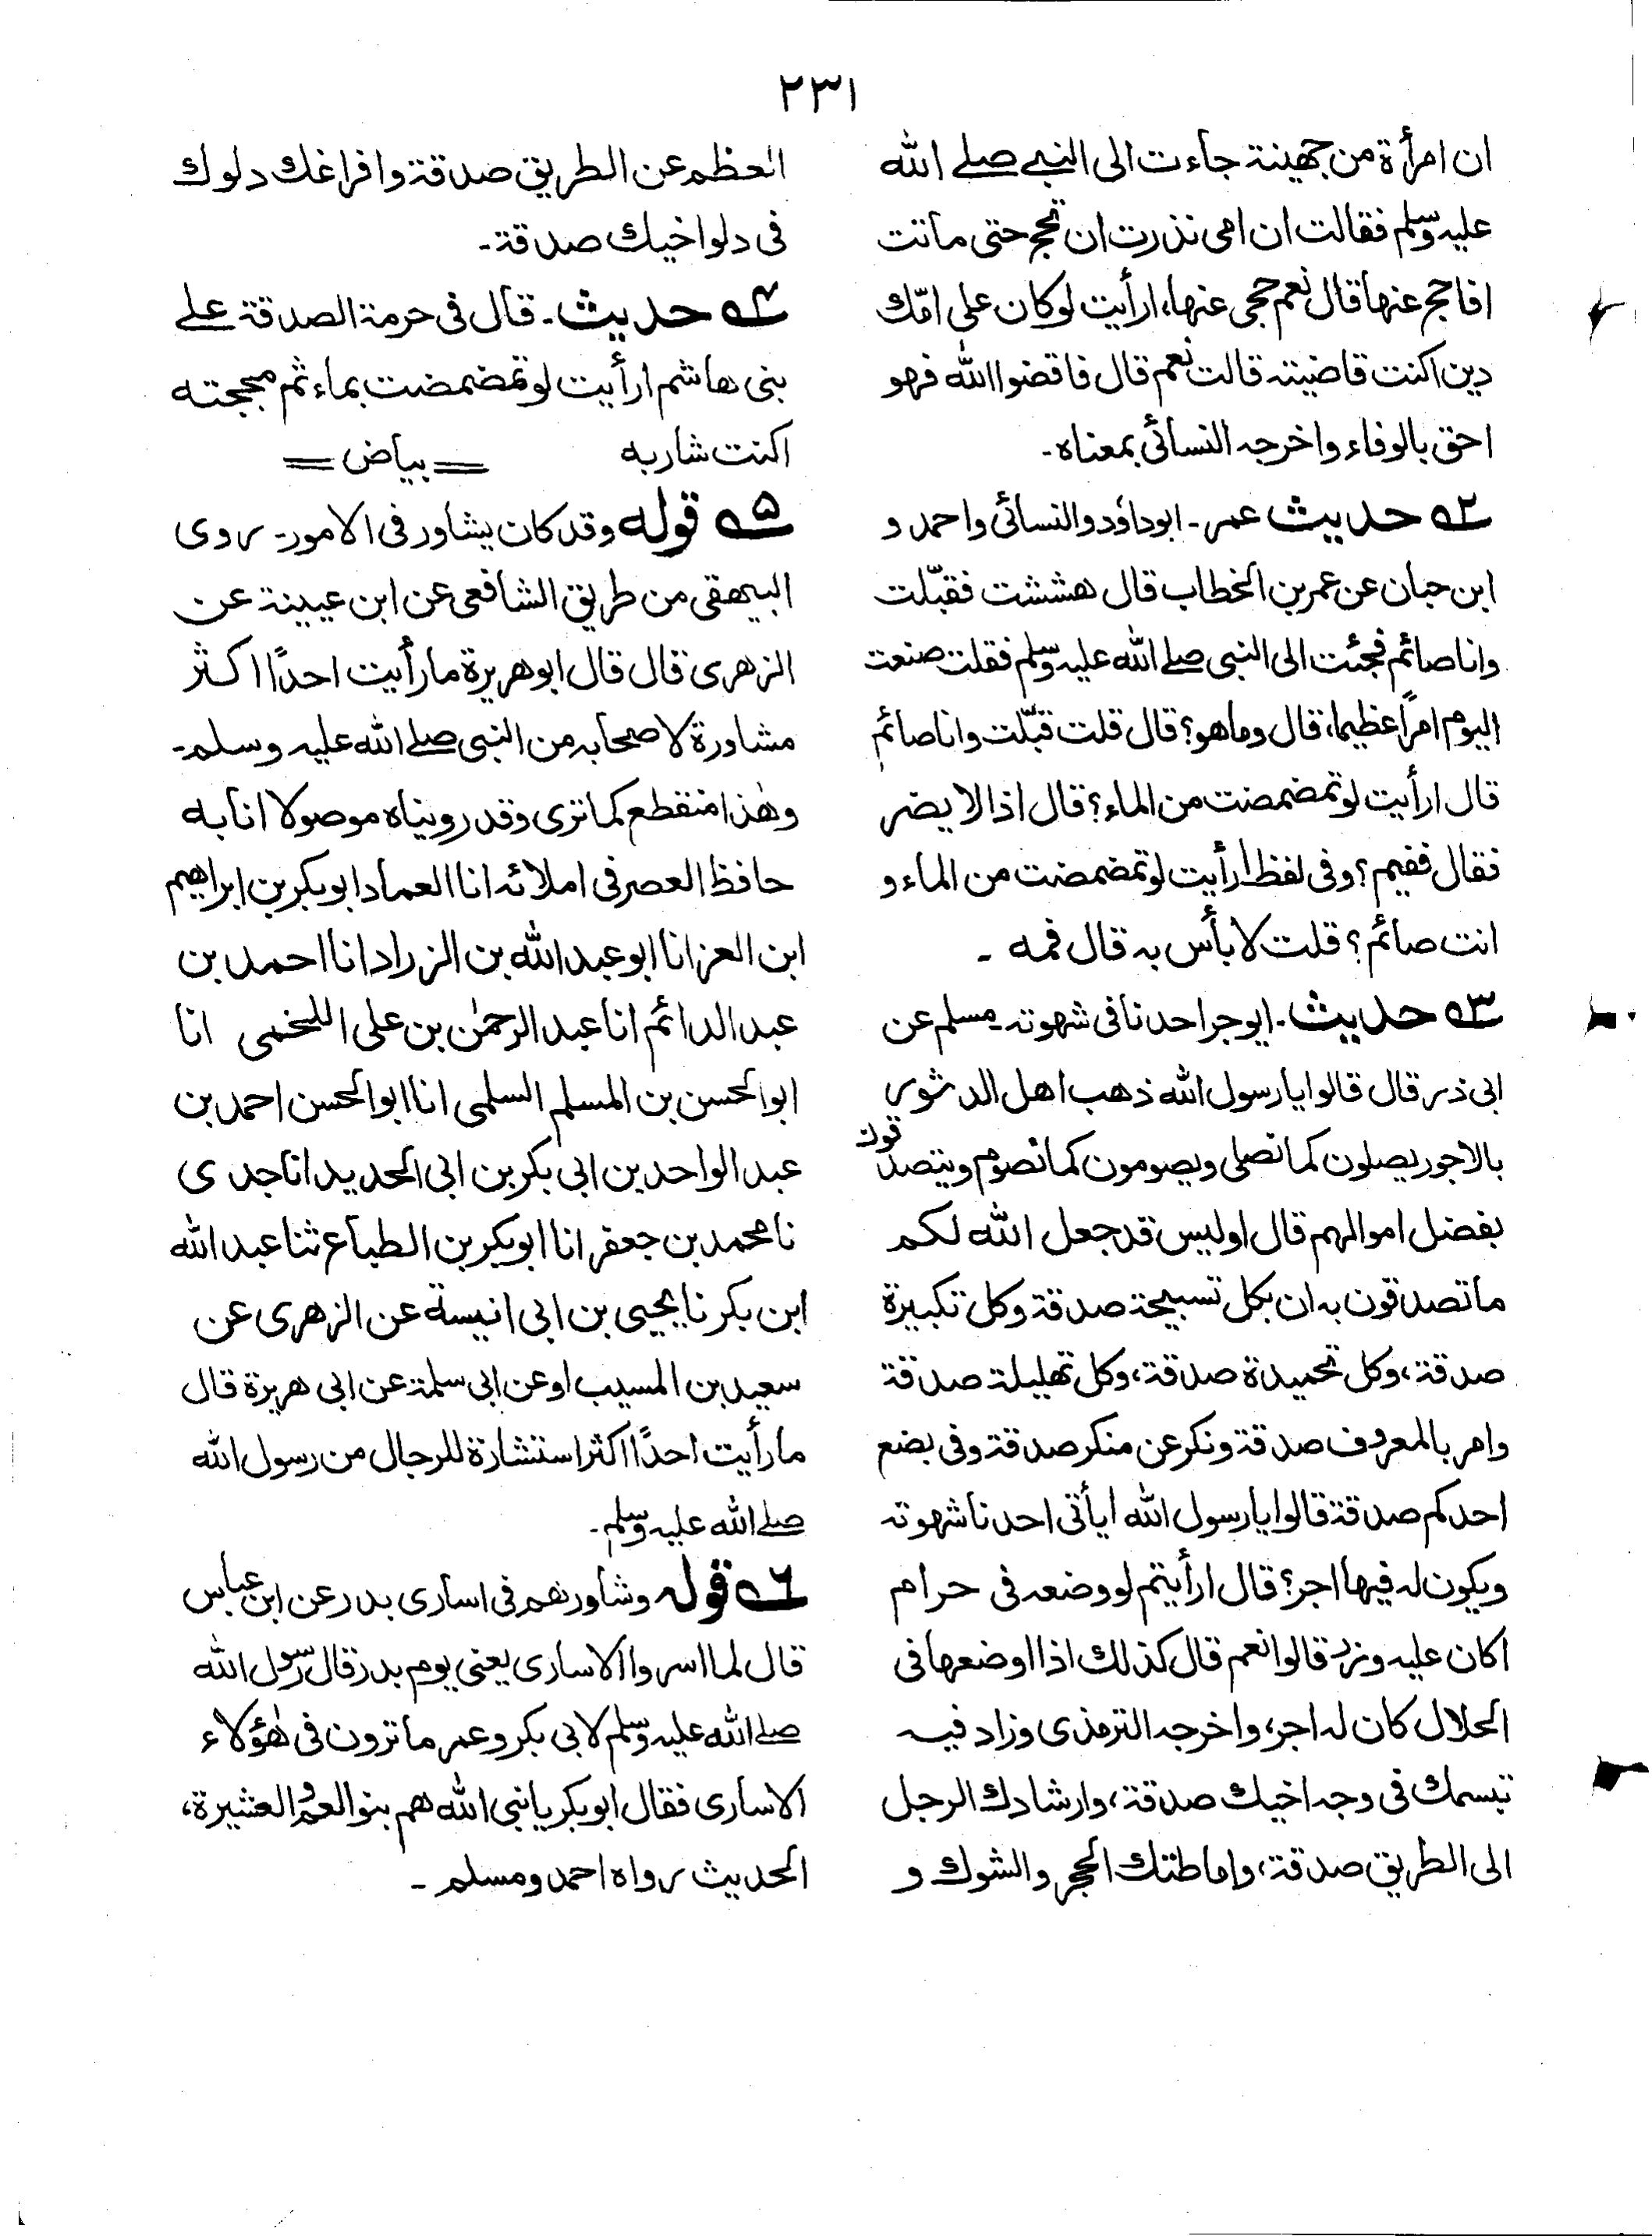 ٢٣١
ان امرأة من جهينة جاءت الى النبي صلے الله
عليه وسلم فقالت ان امى نذرت ان تحج حتى ماتت
افاحج عنها قال نعم حجى عنها، ارأيت لو كان على امّك
دين اكنت قاضيته قالت نعم قال فاقضوا الله فهو
احق بالوفاء واخرجه النسائى بمعناه۔
٢ه حديث عمر۔ ابوداؤد والنسائى واحمد و
ابن حبان عن عمر بن الخطاب قال هششت فقبّلت
وانا صائم فجئت الى النبى صلے الله عليه وسلم فقلت صنعت
اليوم امرًا عظيما، قال وما هو؟ قال قلت قبّلت وانا صائم
قال ارأيت لو تمضمضت من الماء؟ قال اذا لا يضر
فقال ففيم؟ وفى لفظ ارأيت لو تمضمضت من الماء و
انت صائم؟ قلت لا بأس به قال فمه ۔
٣ه حديث۔ ايوجر احدنا فى شهوته۔ مسلم عن
ابى ذر قال قالوا يا رسول الله ذهب اهل الدثور
بالاجور يصلون كما نصلى ويصومون كما نصوم ويتصدقون
بفضل اموالهم قال اوليس قد جعل الله لكم
ما تصدقون به ان بكل تسبيحة صدقة وكل تكبيرة
صدقة، وكل تحميدة صدقة، وكل تهليلة صدقة
وامر بالمعروف صدقة ونكر عن منكر صدقة وفى بضع
احدكم صدقة قالوا يا رسول الله ايأتى احدنا شهوته
ويكون له فيها اجر؟ قال ارأيتم لو وضعه فى حرام
اكان عليه وزر قالوا نعم قال كذلك اذا اوضعها فى
الحلال كان له اجر، واخرجه الترمذى وزاد فيه
تبسمك فى وجه اخيك صدقة، وارشادك الرجل
الى الطريق صدقة، واماطتك الحجر والشوك و
العظم عن الطريق صدقة وافراغك دلوك
فى دلو اخيك صدقة۔
٤ه حديث۔ قال فى حرمة الصدقة علے
بنى هاشم ارأيت لو تمضمضت بماء ثم مججته
اكنت شاربه = بياض =
٥ه قوله وقد كان يشاور فى الامور۔ روى
البيهقى من طريق الشافعى عن ابن عيينة عن
الزهرى قال قال ابوهريرة ما رأيت احدًا اكثر
مشاورة لاصحابه من النبى صلے الله عليه وسلم۔
وهٰذا منقطع كما ترى وقد رويناه موصولا انا به
حافظ العصر فى املائه انا العماد ابوبكر بن ابراهيم
ابن العز انا ابو عبد الله بن الزراد انا احمد بن
عبد الدائم انا عبد الرحمٰن بن على اللخمى انا
ابو الحسن بن المسلم السلمى انا ابو الحسن احمد بن
عبد الواحد بن ابى بكر بن ابى الحديد انا جدى
نا محمد بن جعفر انا ابوبكر بن الطباع ثنا عبد الله
ابن بكر نا يحيى بن ابى انيسة عن الزهرى عن
سعيد بن المسيب او عن ابى سلمة عن ابى هريرة قال
ما رأيت احدًا اكثر استشارة للرجال من رسول الله
صلے الله عليه وسلم۔
٦ه قوله وشاورهم فى اسارى بدر عن ابن عباس
قال لما اسروا الاسارى يعنى يوم بدر قال رسول الله
صلے الله عليه وسلم لابى بكر وعمر ما ترون فى هٰؤلاء
الاسارى فقال ابوبكر يا نبى الله هم بنو العم والعشيرة،
الحديث رواه احمد ومسلم ۔